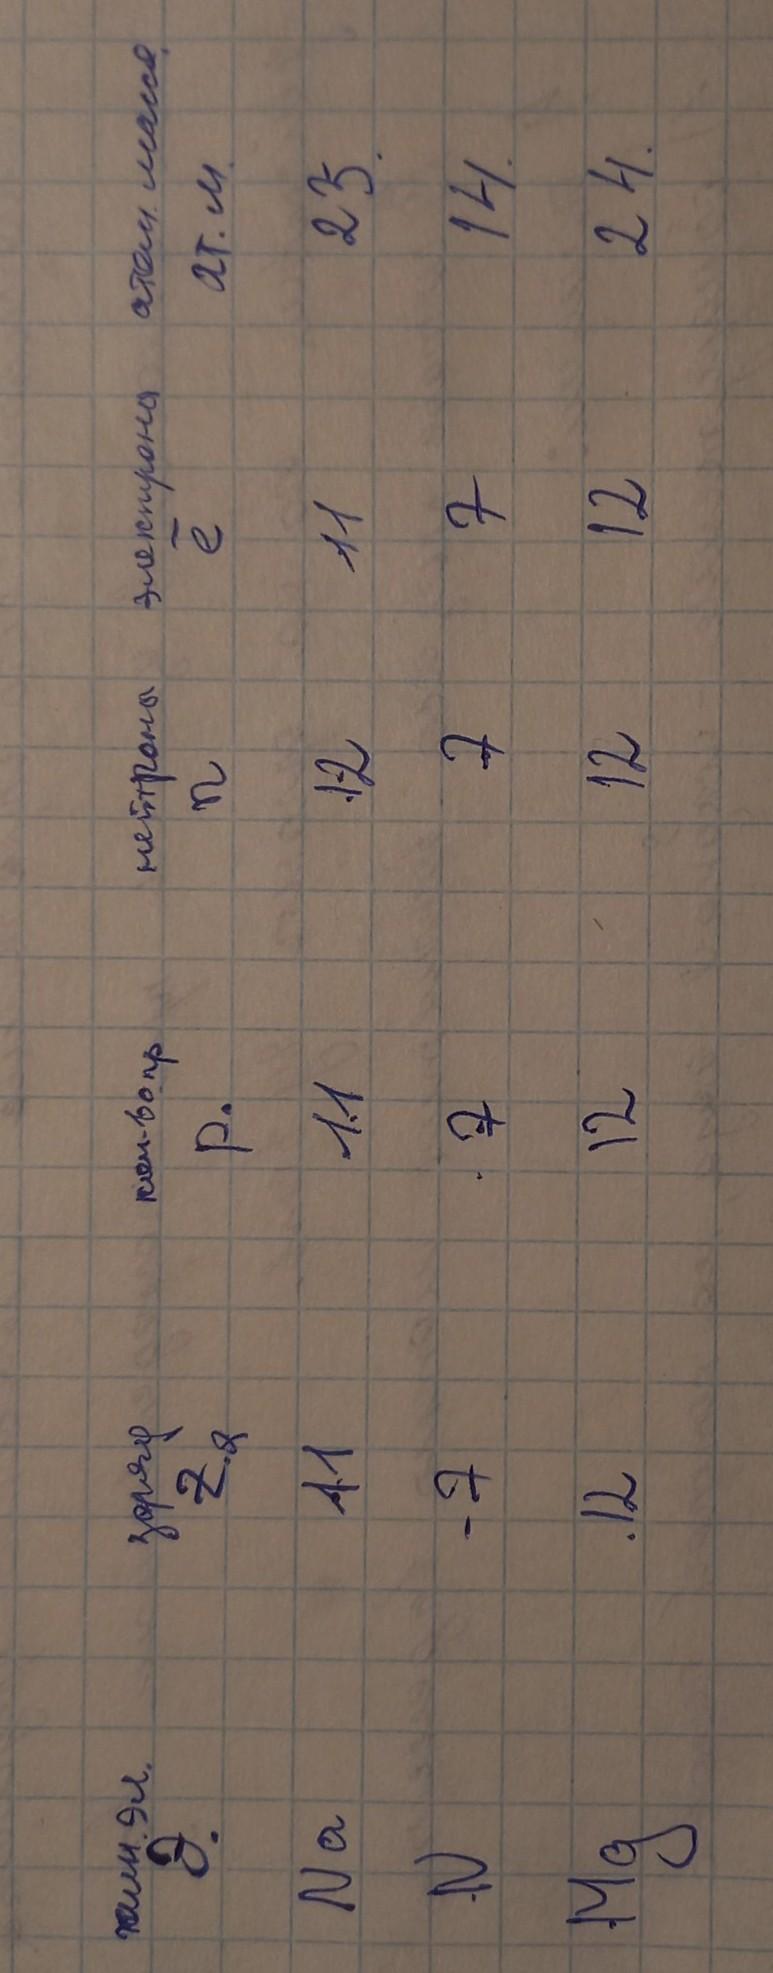 хим. эл. заряд кол-во пр нейтрона электрона атом. масса
Э. Z.я p. n ē ат.м.
Na 11 11 12 11 23.
N -7 7 7 7 14.
Mg 12 12 12 12 24.